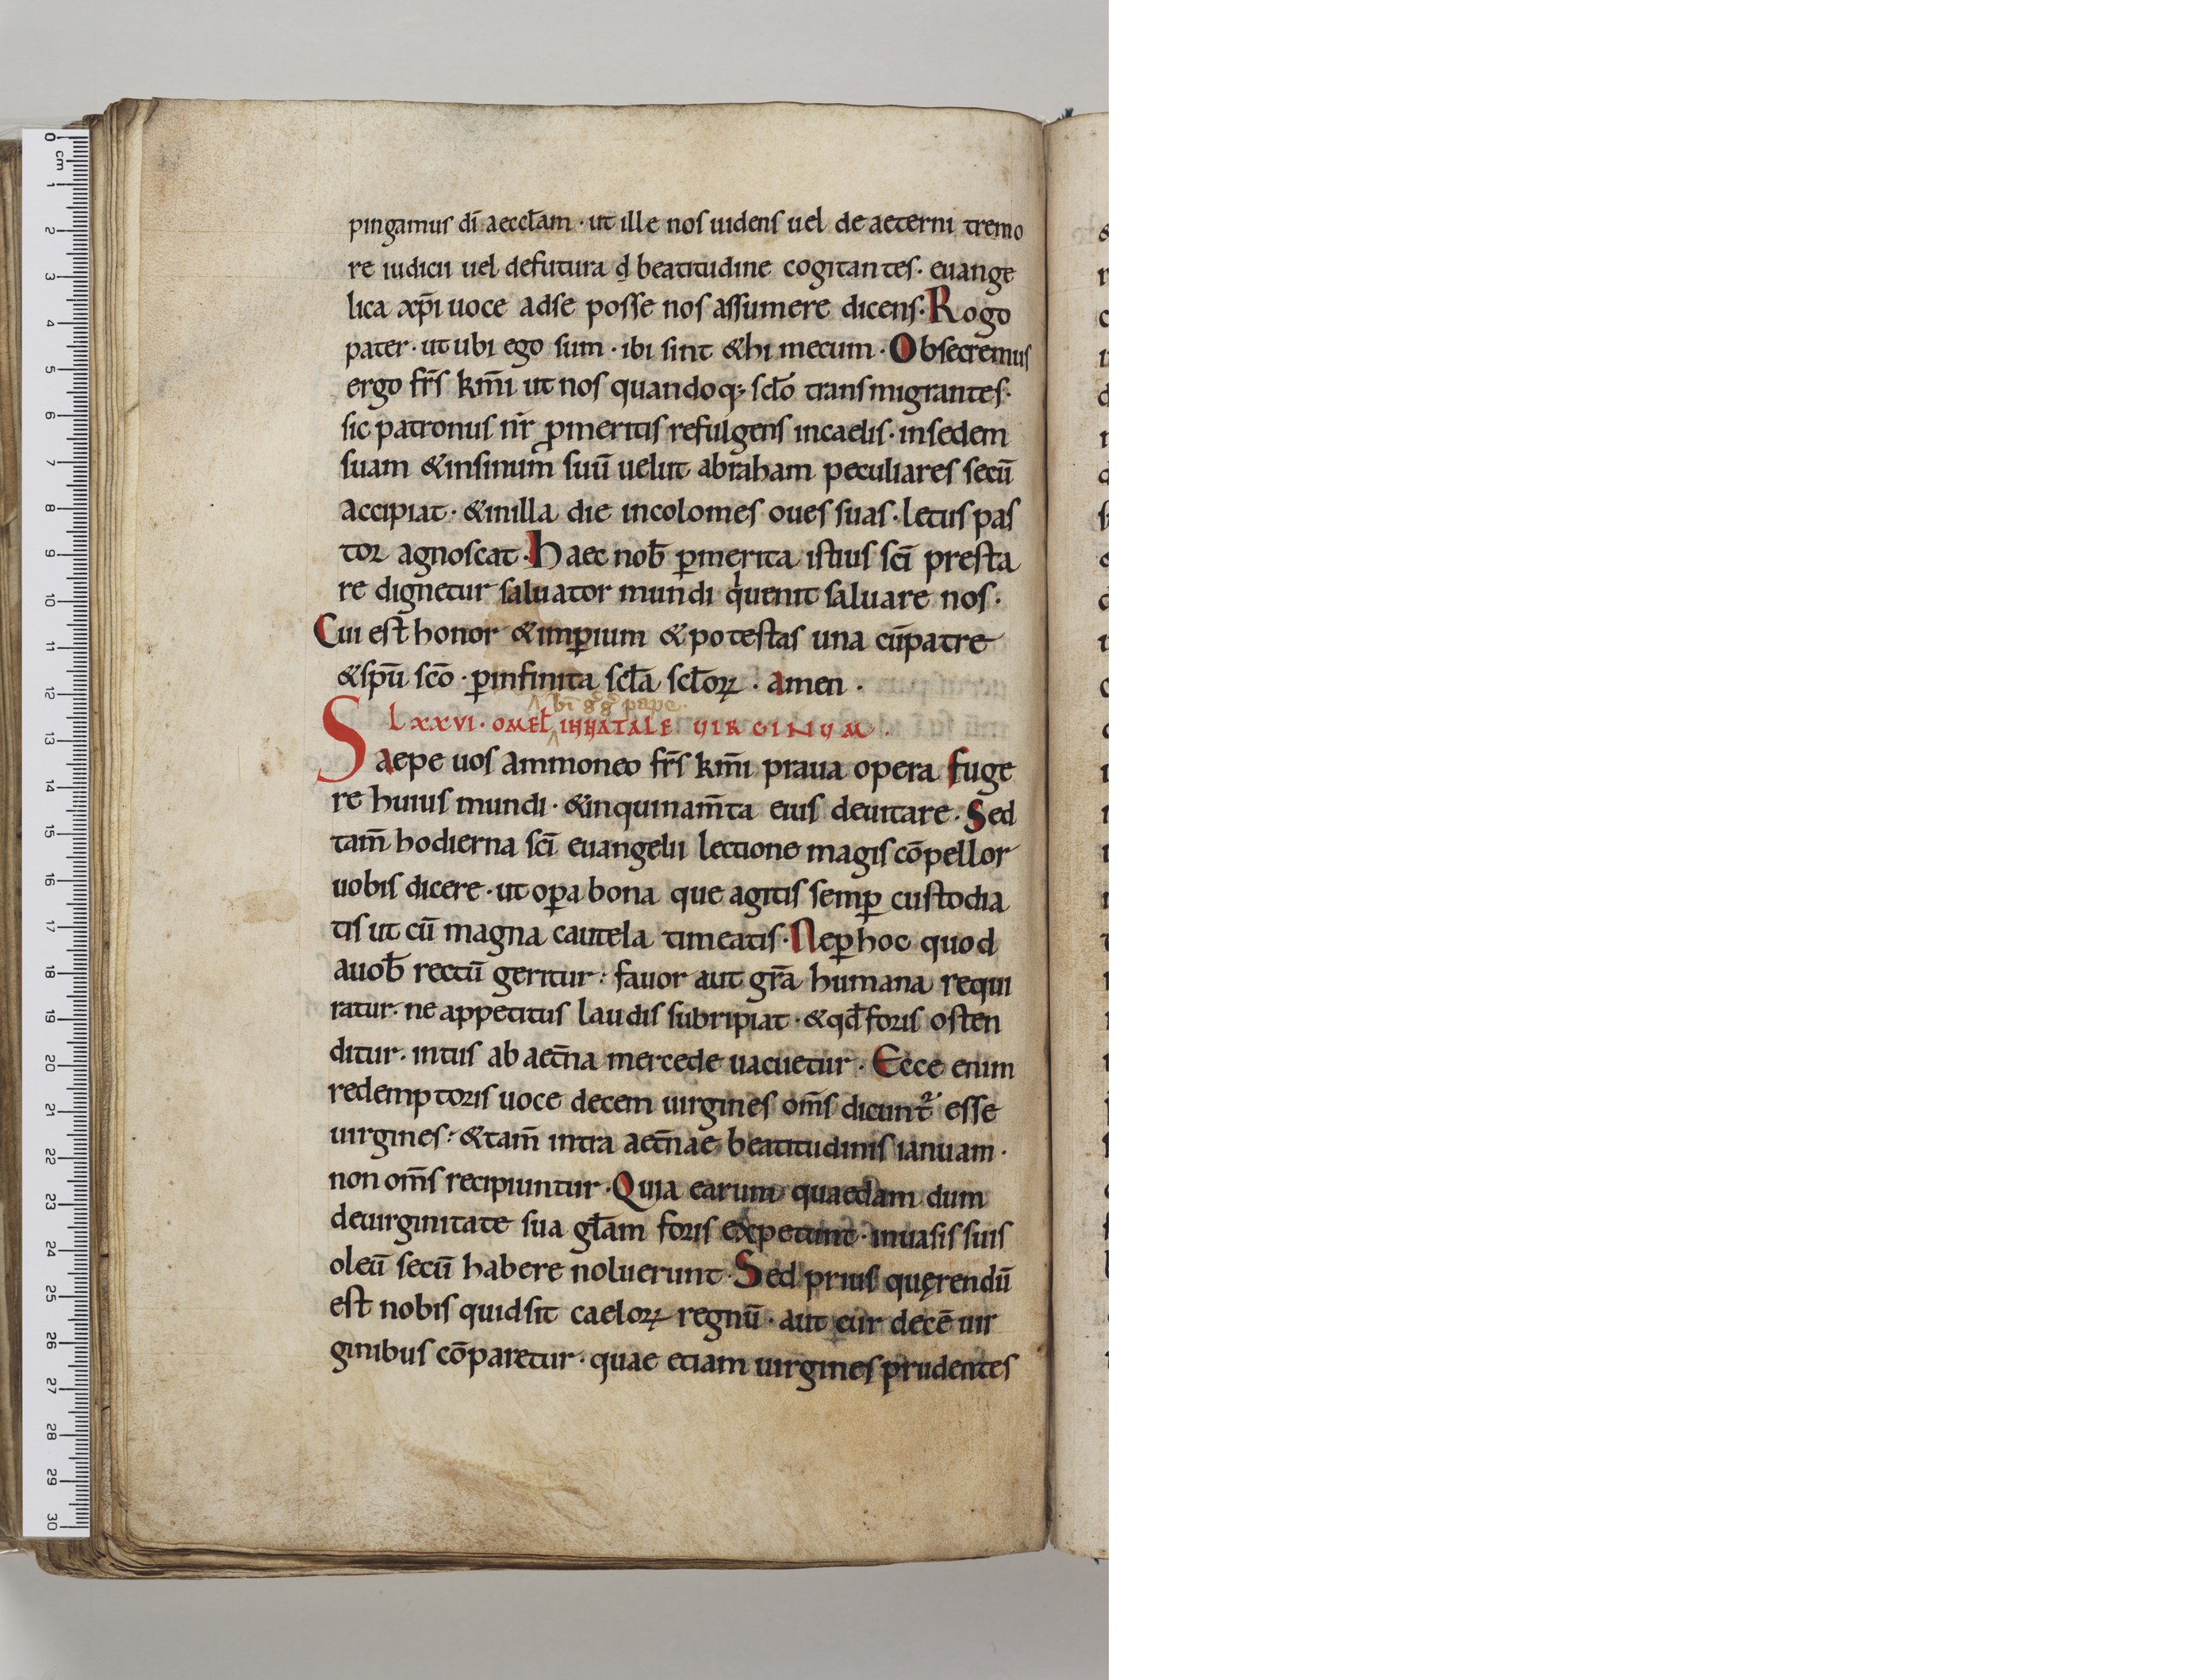 pingamus dī aeccl̄am · ut ille nos uidens uel de aeterni tremo
re iudicii uel defutura d beatitudine cogitantes · euange
lica xp̄i uoce adse posse nos assumere dicens · Rogo
pater · ut ubi ego sum · ibi sint &hi mecum · Obsecremus
ergo fr̄s km̄i ut nos quandoq; scl̄o transmigrantes ·
sic patronus nr̄ ꝓmeritis refulgens incaelis · insedem
suam &insinum suū uelut abraham peculiares secū
accipiat · &inilla die incolomes oues suas · letus pas
tor agnoscat · Haec nob̄ ꝑmerita istius sc̄i presta
re dignetur saluator mundi qͥuenit saluare nos ·
Cui est honor &imꝑium &potestas una cūpatre
&spū scō · ꝑinfinita scl̄a scl̄oꝝ · amen ·
bī gͦgͦ pape ·
Lxxvi · OMEL̄ INNATALE VIRGINUM ·
Saepe uos ammoneo fr̄s km̄i praua opera fuge
re huius mundi · &inquinam̄ta eius deuitare · Sed
tam̄ hodierna sc̄i euangelii lectione magis cōpellor
uobis dicere · ut oꝑa bona que agitis semꝑ custodia
tis ut cū magna cautela timeatis · Neꝑ hoc quod
auob̄ rectū geritur : fauor aut gr̄a humana requi
ratur · ne appetitus laudis subripiat · &qd̄ foris osten
ditur · intus ab aet̄na mercede uacuetur · Ecce enim
redemptoris uoce decem uirgines om̄s dicunt᷑ esse
uirgines : &tam̄ intra aet̄nae beatitudinis ianuam ·
non om̄s recipiuntur · Quia earum quaedam dum
deuirginitate sua gl̄am foris expetunt · inuasis suis
oleū secū habere noluerunt · Sed prius quęrendū
est nobis quidsit caeloꝝ regnū · aut cur decē uir
ginibus cōparetur · quae etiam uirgines prudentes
0
cm
1
2
3
4
5
6
7
8
9
10
11
12
13
14
15
16
17
18
19
20
21
22
23
24
25
26
27
28
29
30